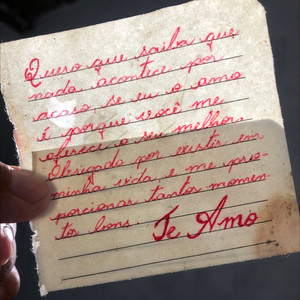 Quero que saiba que
nada acontece por
acaso se eu o amo
é porque você me
oferece o seu melhor.
Obrigado por existir em
minha vida e me pro-
porcionar tantos momen-
tos bons. Te Amo